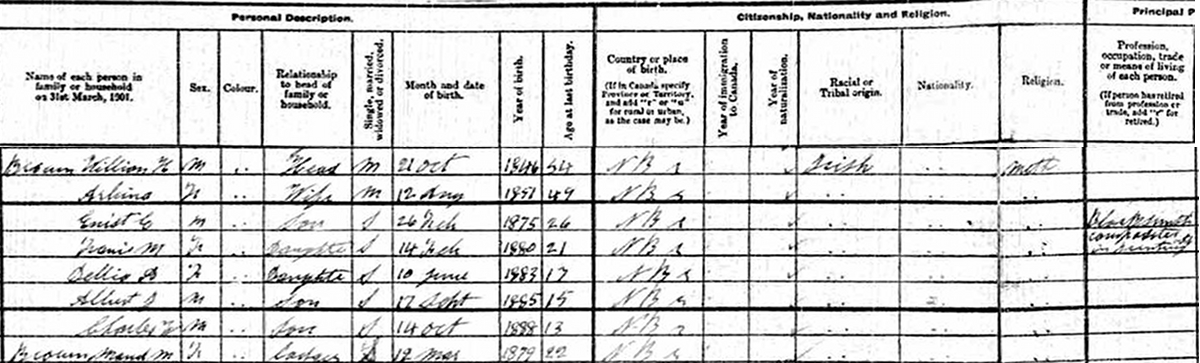 Personal Description. Citizenship, Nationality and Religion. Principal P
Name of each person in family or household on 31st March, 1901. Sex. Colour. Relationship to head of family or household. Single, married, widowed or divorced. Month and date of birth. Year of birth. Age at last birthday. Country or place of birth. (If in Canada specify Province or Territory, and add "r" or "u" for rural or urban, as the case may be.) Year of immigration to Canada. Year of naturalization. Racial or Tribal origin. Nationality. Religion. Profession, occupation, trade or means of living of each person. (If person has retired from profession or trade, add "r" for retired.)
Brown William H M Head M 21 Oct 1846 54 N B r Irish Meth
F Wife M 12 Aug 1851 49 N B r
E m Son S 26 Feb 1875 26 N B r Blacksmith
M F Daughte S 14 Feb 1880 21 N B r compositor in printing
F Daughte S 10 June 1883 17 N B r
Albert m Son S 17 Sept 1885 15 N B r
Charles M Son S 14 Oct 1888 13 N B r
Brown Maud M F S 12 Mar 1879 22 N B r